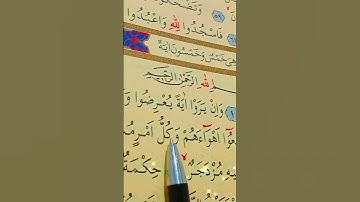 وَتَضْحَكُو
٥٩
فَاسْجُدُوا لِلّٰهِ وَاعْبُدُوا
هِىَ خَمْسٌ وَخَمْسُونَ اٰيَةً
اللّٰهِ الرَّحْمٰنِ الرَّحِيمِ
وَاِنْ يَرَوْا اٰيَةً يُعْرِضُوا وَ
اَهْوَٓاءَهُمْ وَكُلُّ اَمْرٍ
مُزْدَجَرٌ حِكْمَةٌ